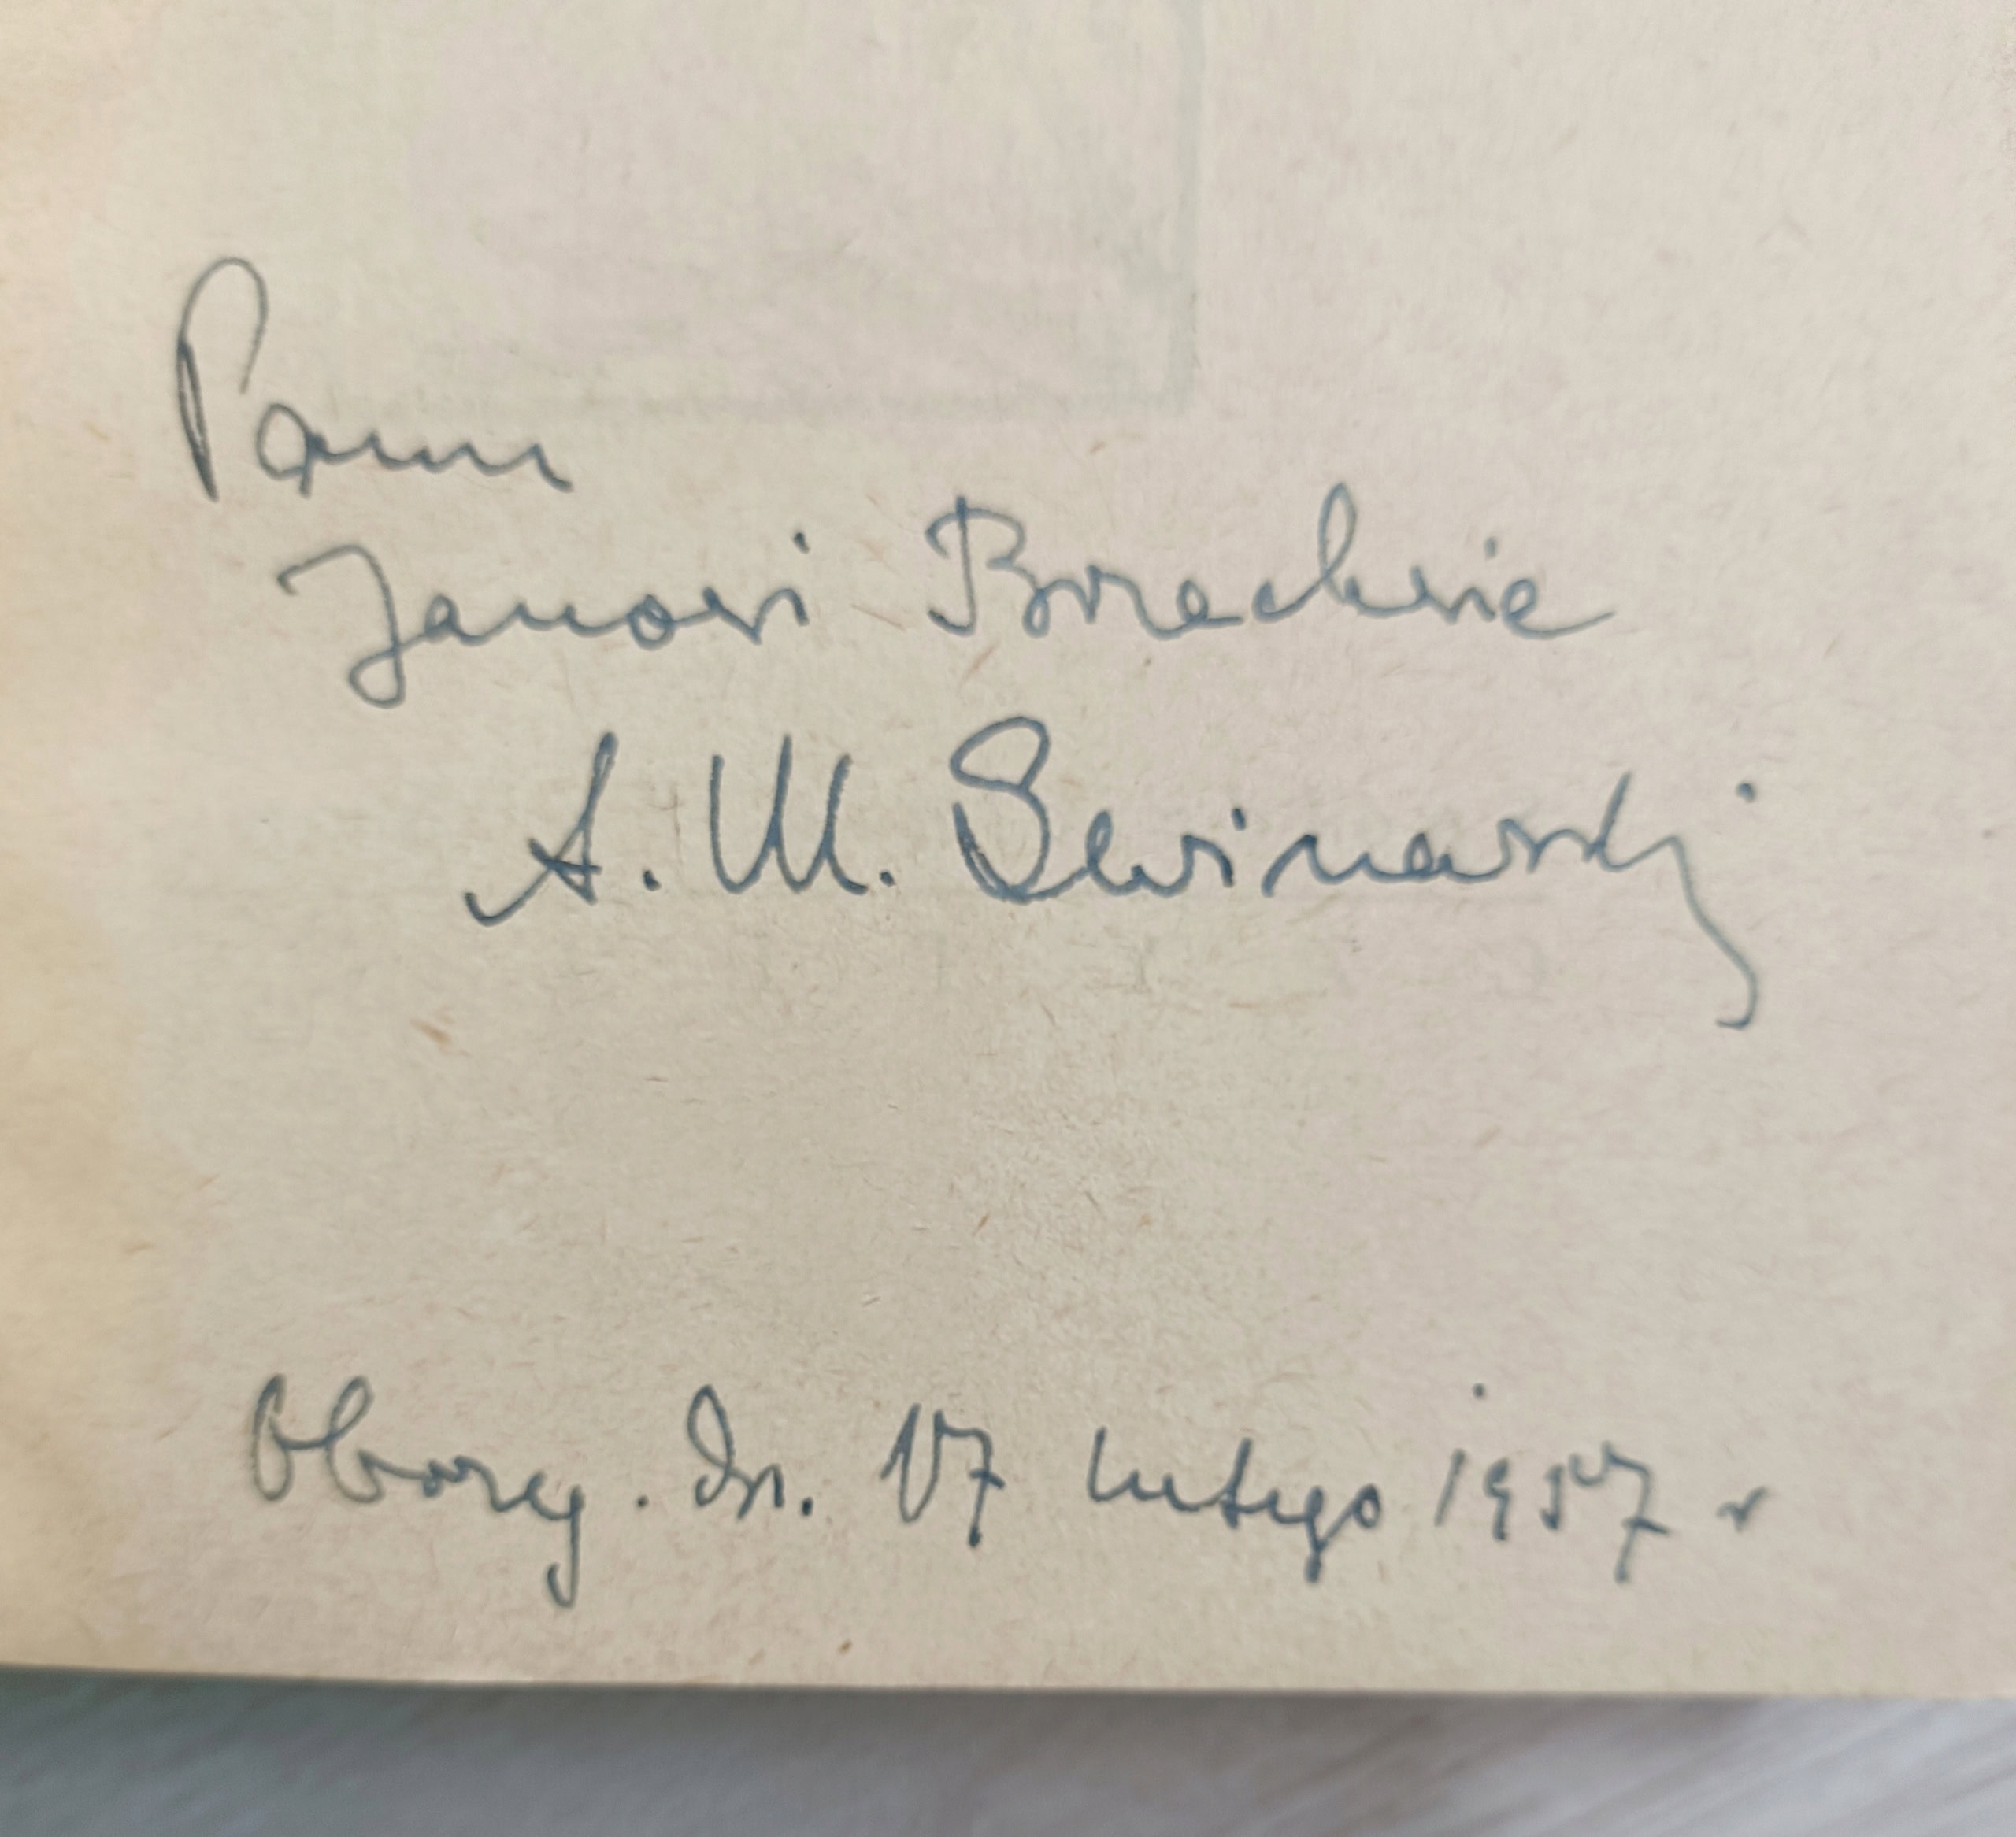 Panu
Janowi Brzechwie
A. M. Swinarski
Obory. dn. 17 lutego 1957 r